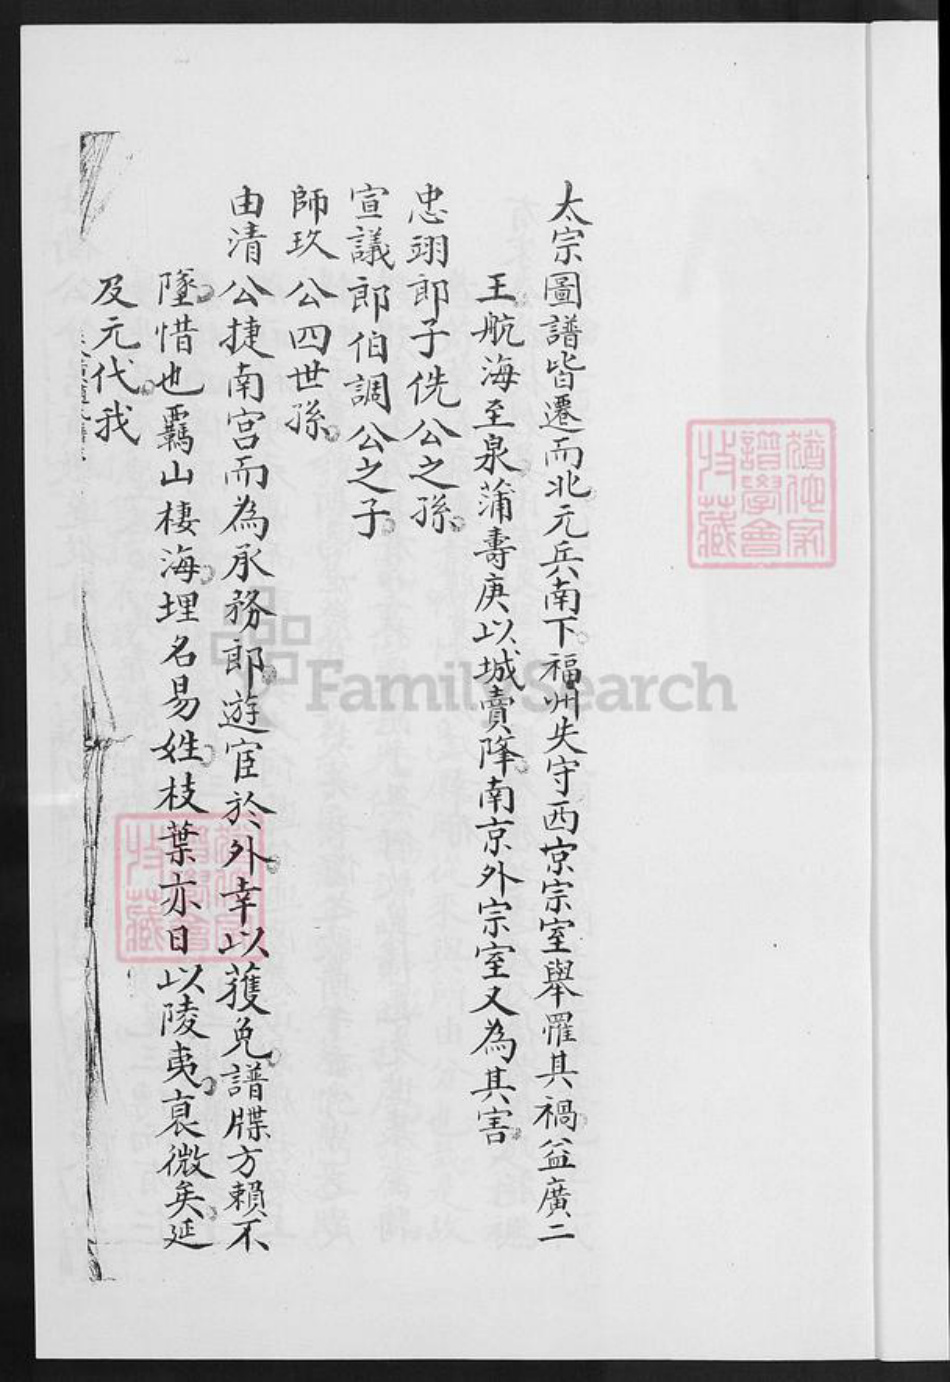 太宗圖譜皆遷而北元兵南下福州失守西京宗室舉罹其禍益廣二
王航海至泉蒲壽庚以城賣降南京外宗室又為其害
忠翊郎子侁公之孫
宣議郎伯調公之子
師玖公四世孫
由清公捷南宮而為承務郎遊宦於外幸以獲免譜牒方賴不
墜惜也覊山棲海埋名易姓枝葉亦日以陵夷衰微矣延
及元代我
譜學會
收藏
譜學會
收藏
FamilySearch